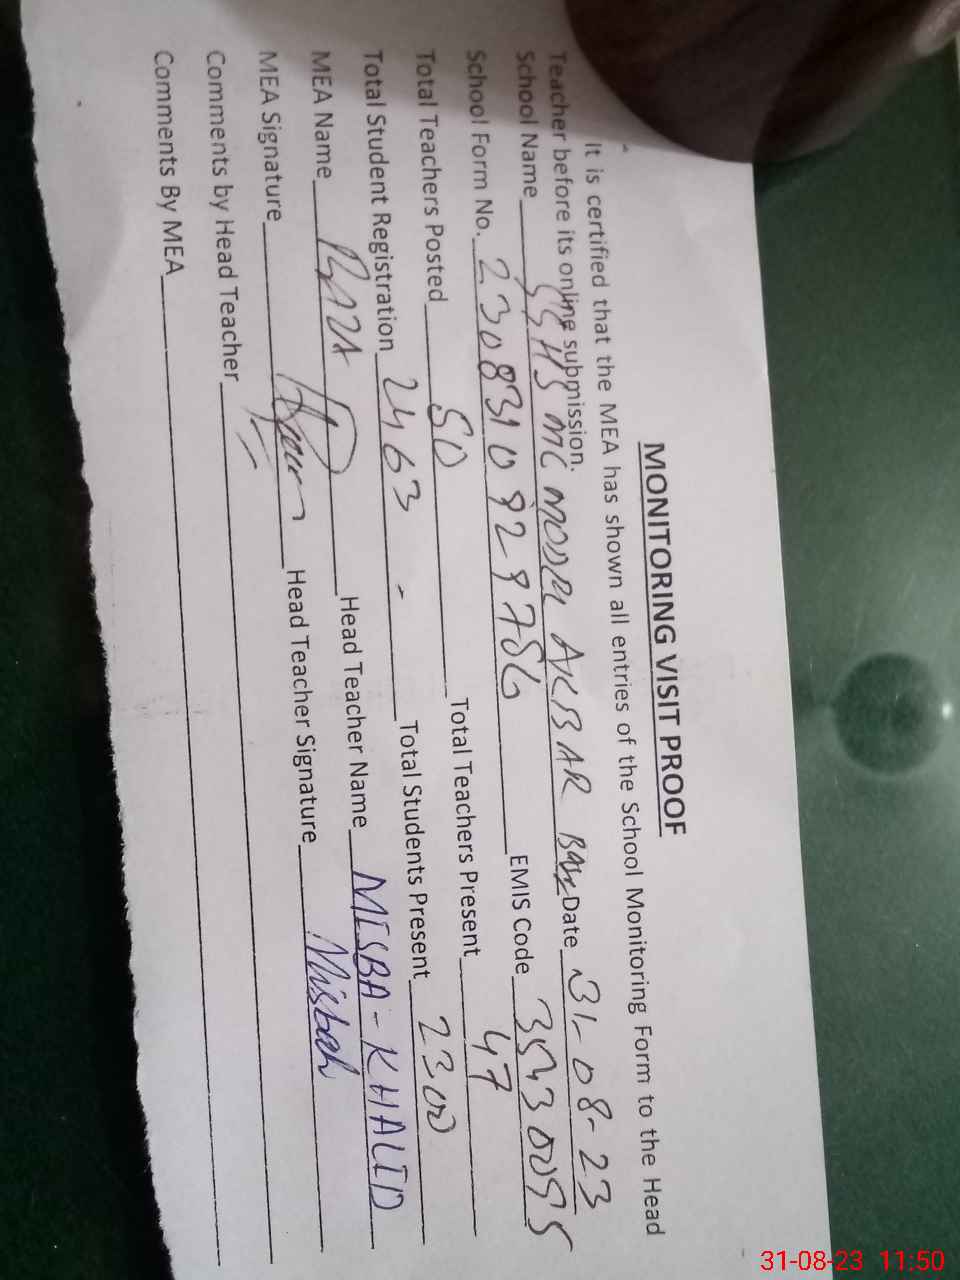 MONITORING VISIT PROOF
It is certified that the MEA has shown all entries of the School Monitoring Form to the Head
Teacher before its online submission.
School Name GGHS MC MODEL AKBAR Date 31-08-23
School Form No. EMIS Code
Total Teachers Posted 50 Total Teachers Present 47
Total Student Registration 2463 - Total Students Present 2300
MEA Name RAZA Head Teacher Name MISBA-KHALID
MEA Signature Head Teacher Signature Misbah
Comments by Head Teacher
Comments By MEA
31-08-23 11:50